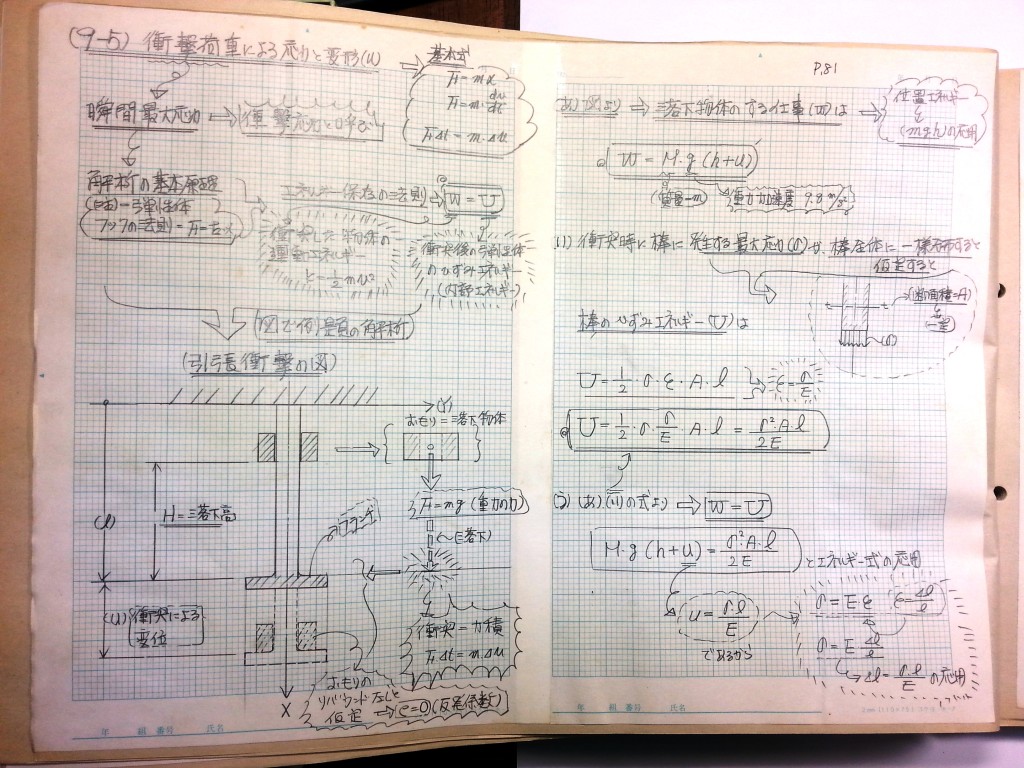 (9-5) 衝撃荷重による応力と変形(u)
基本式
F=mα
F=m・dv/dt
FΔt=m・Δu
瞬間最大応力
衝撃応力と呼ぶ
解析の基本原理
(自由)=弾性体
フックの法則=F=kx
エネルギー保存の法則
W=U
衝突した物体の
運動エネルギー
k=1/2mv²
衝突後の弾性体
のひずみエネルギー
(内部エネルギー)
図で例題の解析
(引張衝撃の図)
(γ)
おもり=落下物体
F=mg(重力の力)
(落下)
(l)
H=落下高
フランジ
(u)
衝突による
変位
衝突=力積
FΔt=m・Δu
おもりの
リバウンドなしと
仮定
e=0(反発係数)
X
年 組 番号 氏名
P.81
(あ)図より
落下物体のする仕事(W)は
位置エネルギー
(mgh)の応用
W=M・g(h+u)
(質量=m)
重力加速度 9.8m/s²
(い)衝突時に棒に発生する最大応力(σ)が棒全体に一様分布すると
仮定すると
(断面積=A)
一定
(σ)
棒のひずみエネルギー(U)は
U=1/2・σ・ε・A・l
ε=σ/E
U=1/2・σ・σ/E・A・l=σ²A・l/2E
(う)(あ)(い)の式より
W=U
M・g(h+u)=σ²A・l/2E
とエネルギー式の応用
u=σ・l/E
であるから
σ=Eε
ε=Δl/l
σ=E Δl/l
Δl=σ・l/E の応用
年 組 番号 氏名